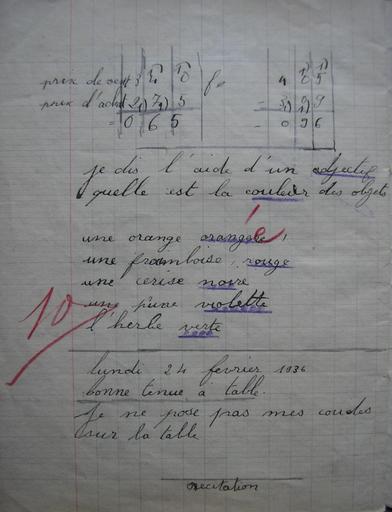 prix de vent 3 4 0 f =
prix d'achat 2 7 5
= 0 6 5
4 0 5
= 3 9
= 0 9 6
je dis l'aide d'un adjectif
quelle est la couleur des objets
une orange orangée
une framboise rouge
une cerise noire
10
une prune violette
l'herbe verte
lundi 24 fevrier 1936
bonne tenue à table.
Je ne pose pas mes coudes
sur la table
recitation